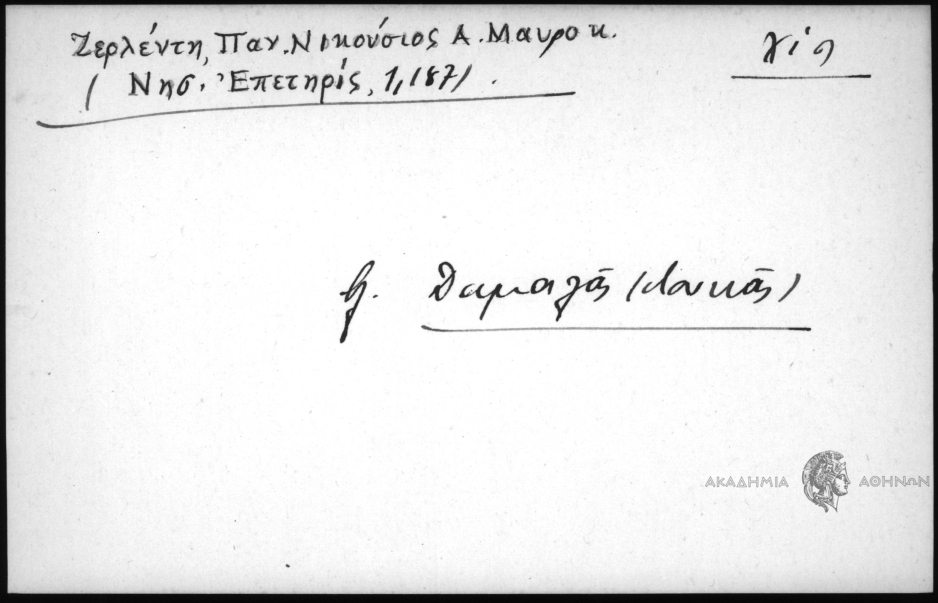 Ζερλέντη, Παν. Νικούσιος Α. Μαυροκ.
( Νησ. Ἐπετηρίς, 1, 187) .
βλ. Δαμαλᾶς (Λουκᾶς)
ΑΚΑΔΗΜΙΑ ΑΘΗΝΩΝ